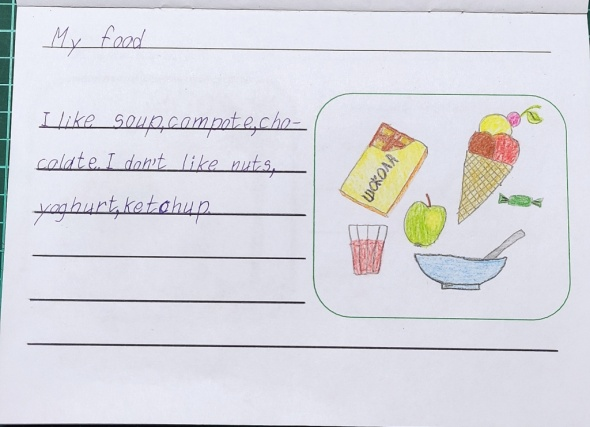 My food
I like soup,compote,cho-
colate. I don't like nuts,
yoghurt,ketchup.
ШОКОЛА